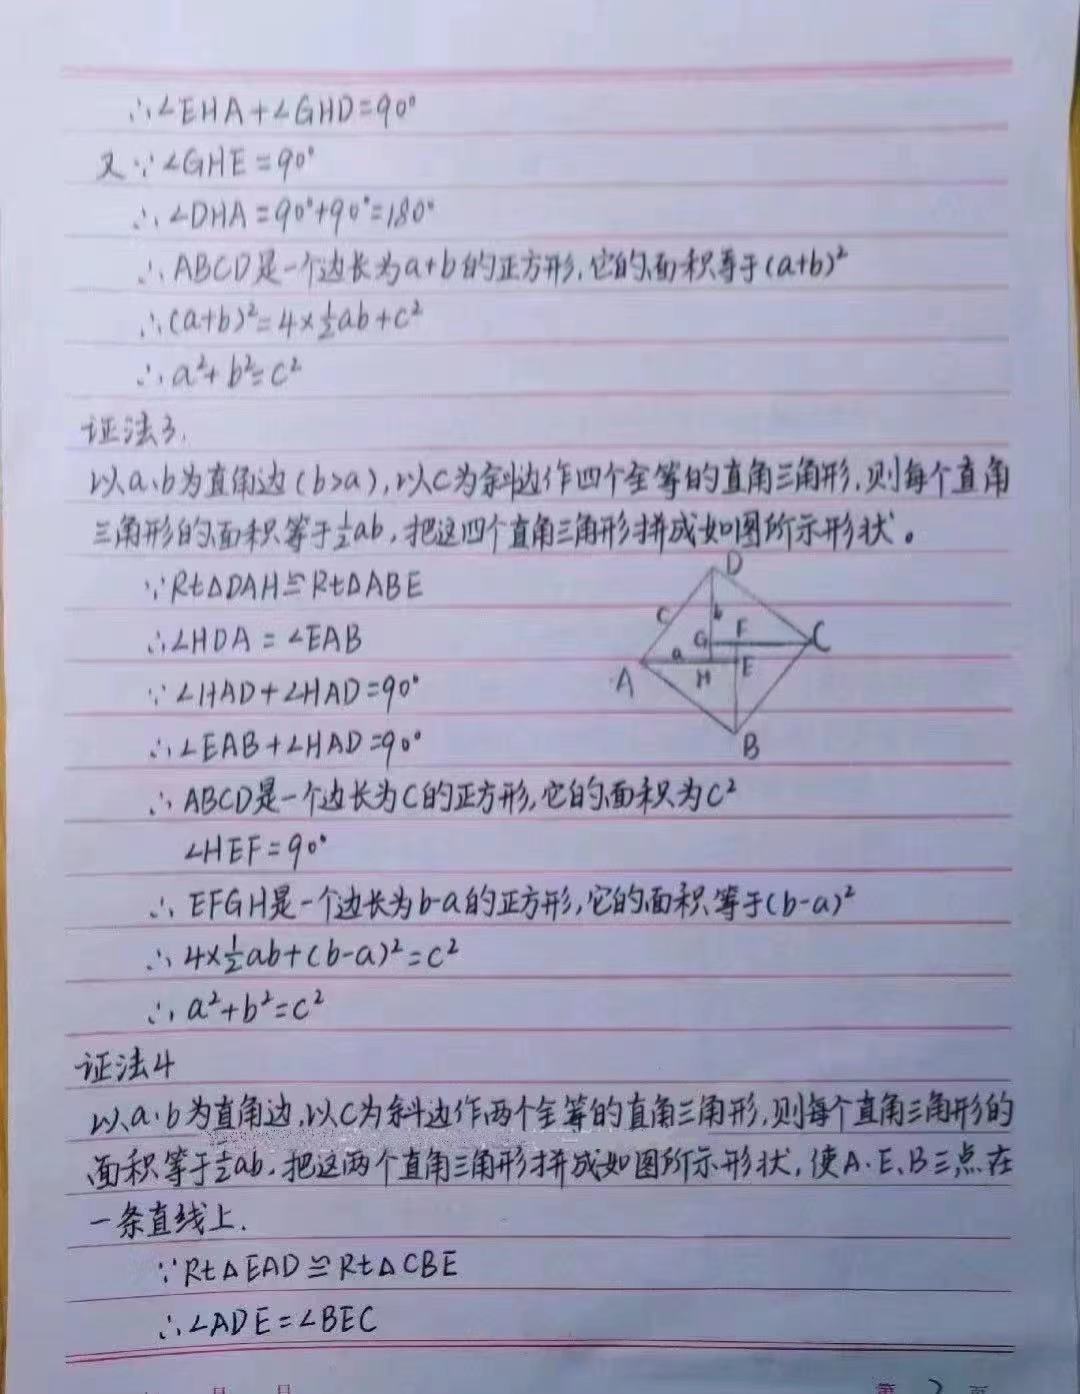 ∴∠EHA+∠GHD=90°
又∵∠GHE=90°
∴∠DHA=90°+90°=180°
∴ABCD是一个边长为a+b的正方形,它的面积等于(a+b)²
∴(a+b)²=4×½ab+c²
∴a²+b²=c²
证法3.
以a、b为直角边(b>a),以C为斜边作四个全等的直角三角形,则每个直角
三角形的面积等于½ab,把这四个直角三角形拼成如图所示形状。
∵Rt△DAH≌Rt△ABE
∴∠HDA=∠EAB
∵∠HAD+∠HAD=90°
∴∠EAB+∠HAD=90°
∴ABCD是一个边长为C的正方形,它的面积为C²
∠HEF=90°
∴EFGH是一个边长为b-a的正方形,它的面积等于(b-a)²
∴4×½ab+(b-a)²=c²
∴a²+b²=c²
D
c
b
G
F
C
a
A
H
E
B
证法4
以a、b为直角边,以C为斜边作两个全等的直角三角形,则每个直角三角形的
面积等于½ab,把这两个直角三角形拼成如图所示形状,使A、E、B三点在
一条直线上.
∵Rt△EAD≌Rt△CBE
∴∠ADE=∠BEC